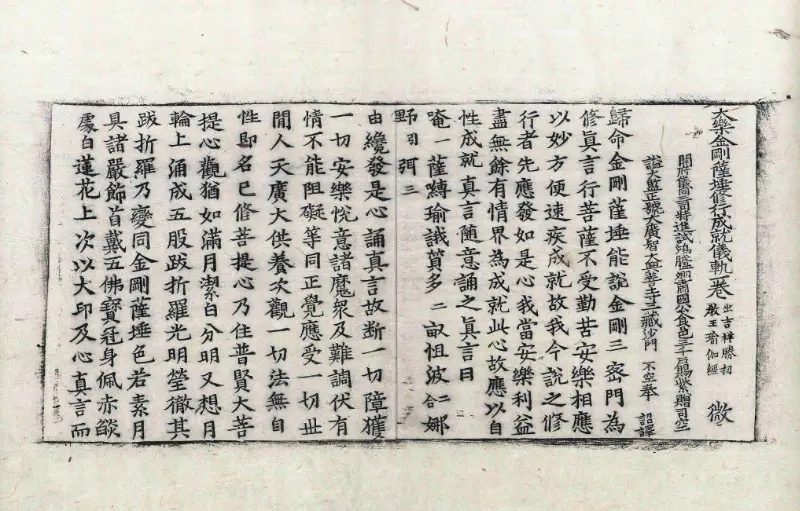 大樂金剛薩埵修行成就儀軌一卷 出吉祥勝初教王瑜伽經 微
開府儀同三司特進試鴻臚卿肅國公食邑三千戶賜紫贈司空
諡大鑒正號大廣智大興善寺三藏沙門 不空奉 詔譯
歸命金剛薩埵能說金剛三密門為
修真言行菩薩不受勤苦安樂相應
以妙方便速疾成就故我今說之修
行者先應發如是心我當安樂利益
盡無餘有情界為成就此心故應以自
性成就真言隨意誦之真言曰
唵一薩嚩瑜誐質多二 𭉨怛波二合娜
野引弭三
由纔發是心誦真言故断一切障獲
一切安樂悅意諸魔衆及難調伏有
情不能阻礙等同正覺應受一切世
間人天廣大供養次觀一切法無自
性即名已修菩提心乃住普賢大菩
提心觀猶如滿月潔白分明又想月
輪上涌成五股跋折羅光明瑩徹其
跋折羅乃變同金剛薩埵色若素月
具諸嚴飾首戴五佛寶冠身佩赤燄
處白蓮花上 次以大印及心真言而